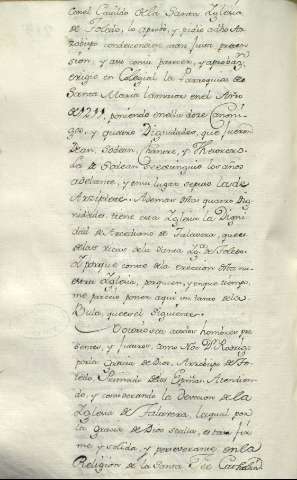 con el Cavildo de la Santa Yglesia
de Toledo, lo aprobó, y pidio a dho Ar-
zobispo condescendiese a tan justa preten-
sion, y asi con su parecer, y aprobaz.ⁿ
erigio en Colegial la Parroquia de
Santa Maria la mayor en el Año
de 1211, poniendo en ella doce Canoni-
gos, y quatro Dignidades, que fueron
Dean, Sodean, Chantre, y Thesorero.
La de Sodean se extinguió los años
adelante, y en su lugar se puso la de
Arzipreste. Ademas de las quatro Dig-
nidades, tiene esta Yglesia la Digni-
dad de Arcediano de Talavera, que es
de las ricas de la Santa Yg.ª de Toledo.
Y porque conste de la ereccion de la nu-
estra Yglesia, por quien, y en que tiempo,
me pareció poner aqui un tanto de la
Bula, que es el siguiente.
Conozcan todos los hombres pre-
sentes, y futuros, como Nos D.ⁿ Rodrigo
por la Gracia de Dios, Arzobispo de To-
ledo, Primado de las Españas: Atendien-
do, y considerando la Devocion de la
Yglesia de Talavera, la qual por
la gracia de Dios se alla, estar fir-
me y solida, y perseverante en la
Religion de la Santa Fee Catholica